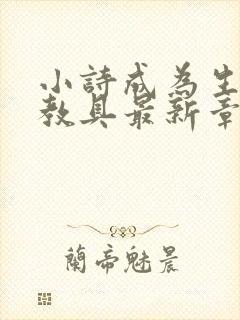 小詩成為生
教具最新章
蘭帝魅晨